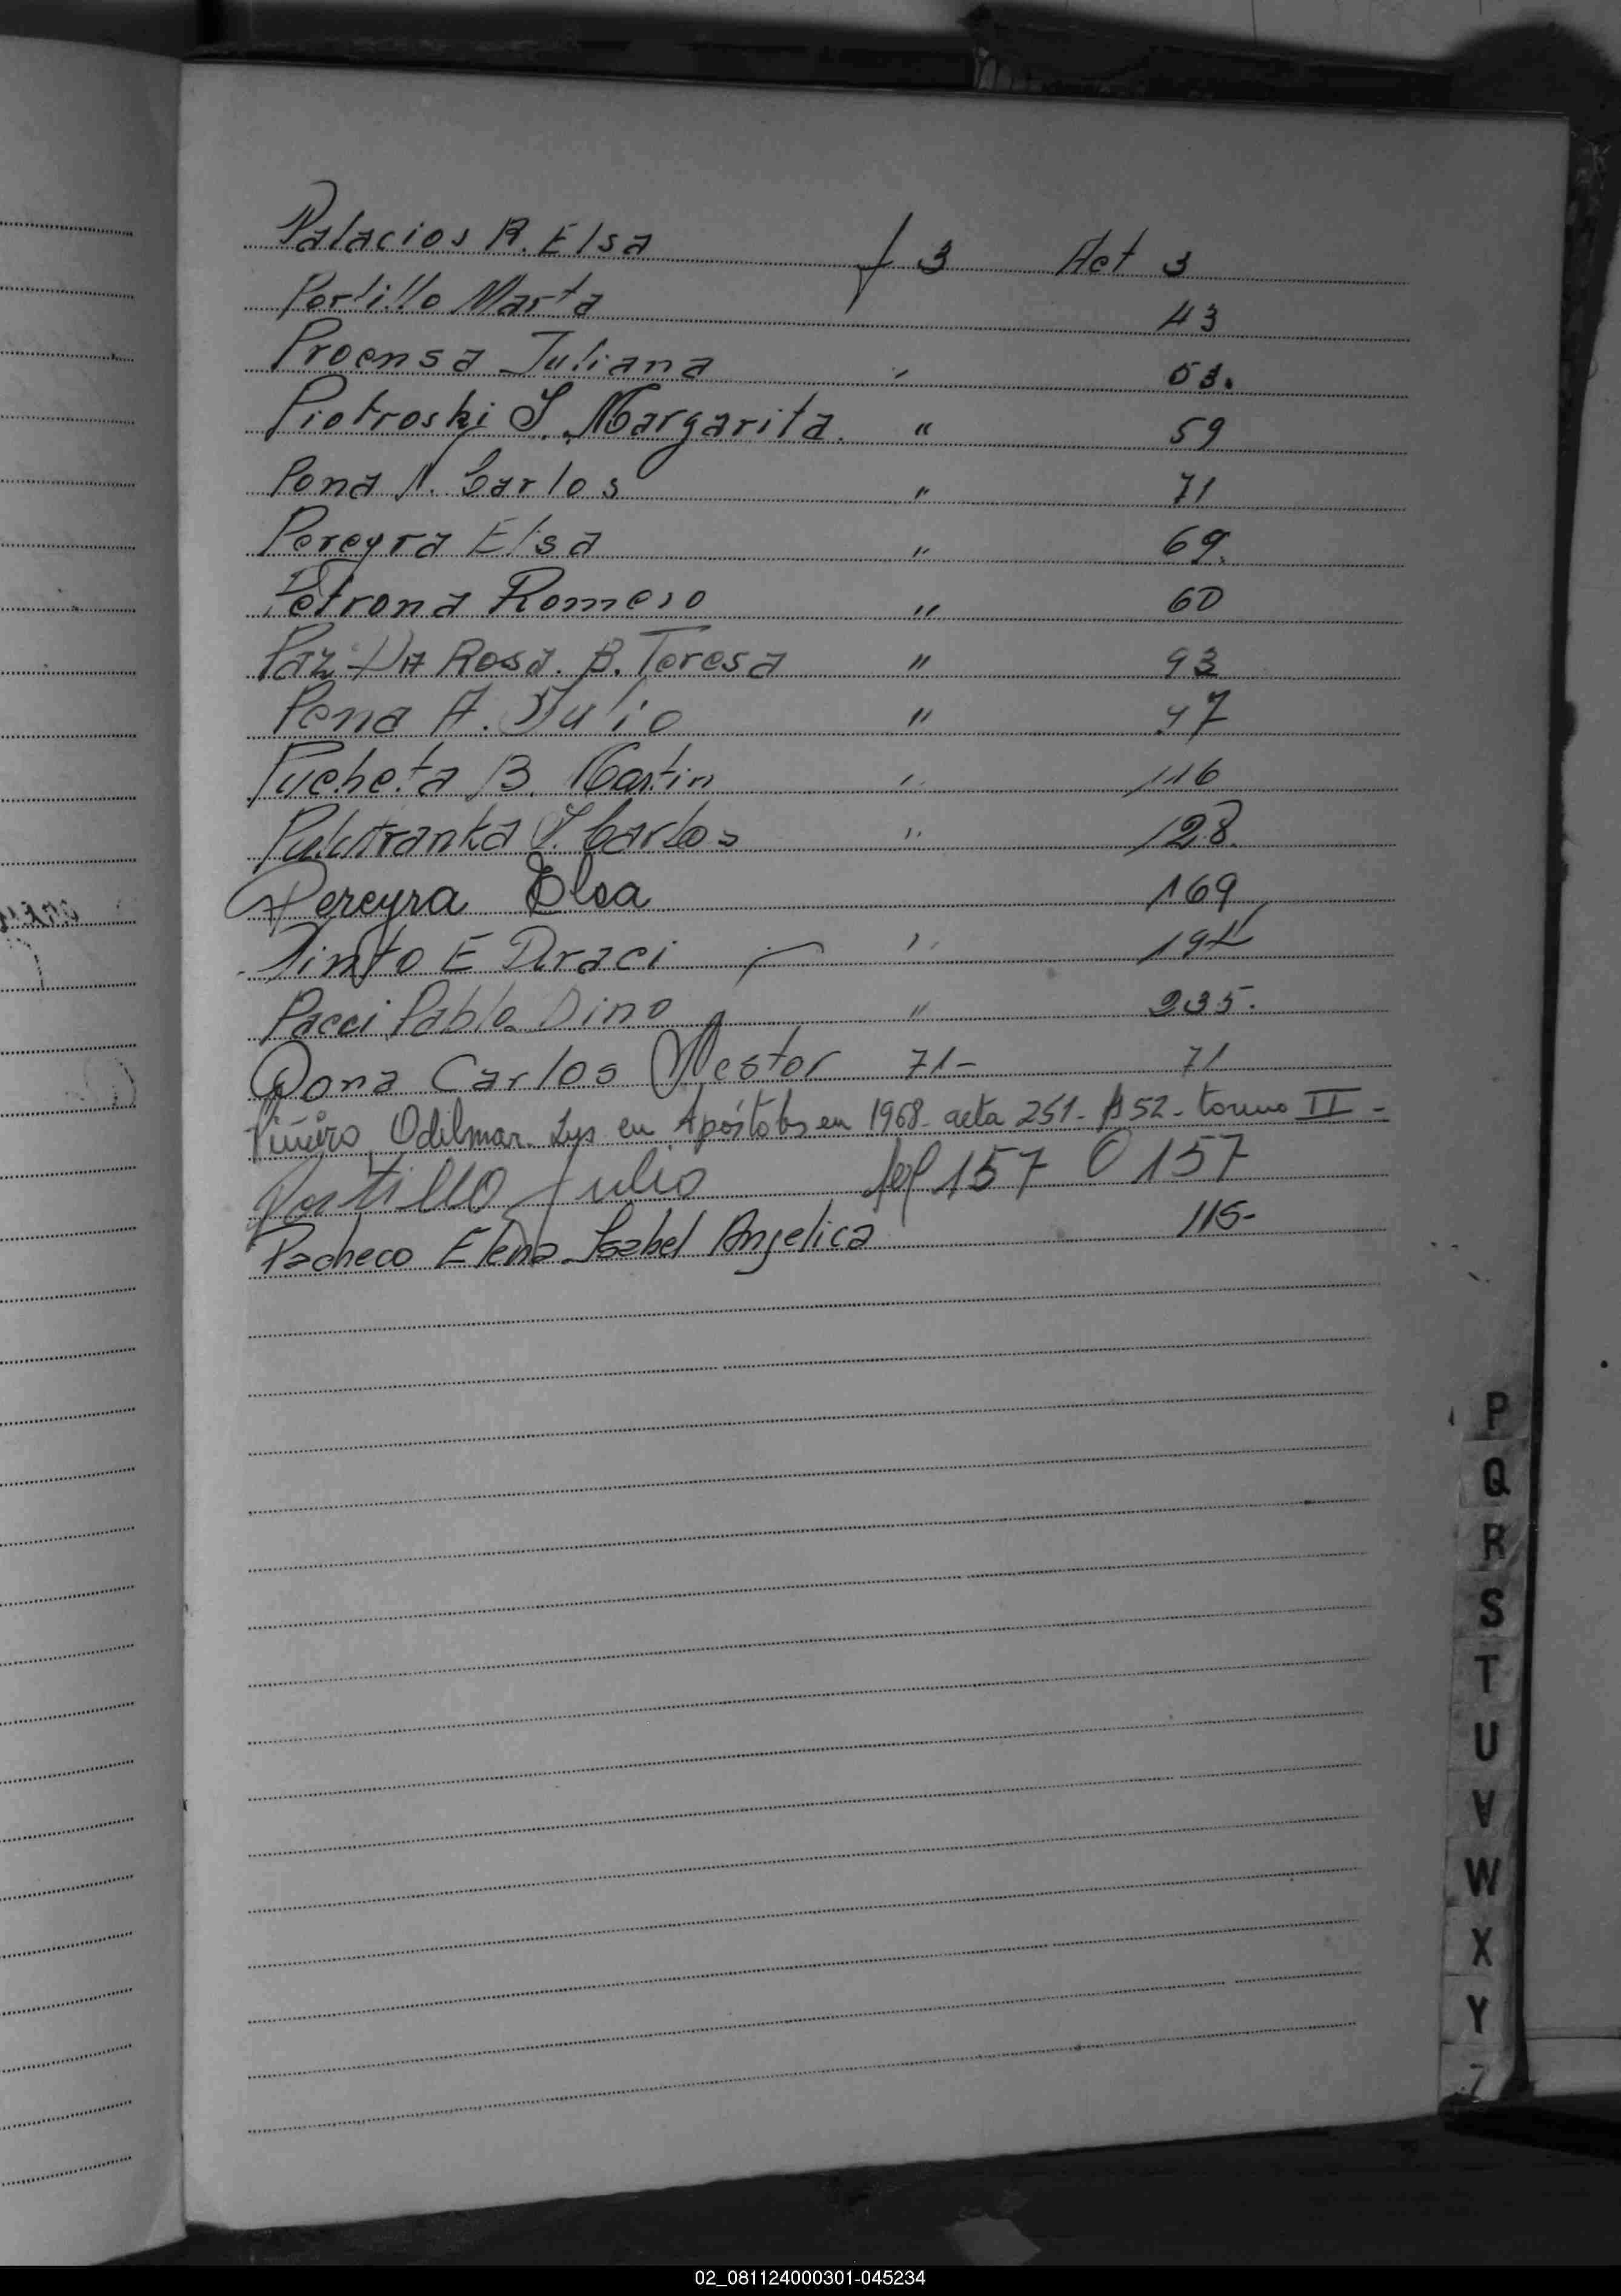 Palacios R. Elsa f 3 Act 3
Portillo Marta 43
Proensa Juliana " 53.
Piotroski S. Margarita. " 59
Pona N. Carlos " 71
Pereyra Elsa " 69.
Petrona Romero " 60
Paz Da Rosa. B. Teresa " 93
Pena A. Julio " 47
Pucheta B. Martin " 116
Carlos " 128.
Pereyra Elsa 169
Pinto E Draci " 194
Pacci Pablo Dino " 235.
Pona Carlos Nestor 71- 71
Piñeiro Odilmar Lys en Apóstoles en 1968- acta 251- f 52- tomo II -
Portillo Julio fol 157 157
Pacheco Elena Isabel Angelica 115-
P
Q
R
S
T
U
V
W
X
Y
Z
02_081124000301-045234